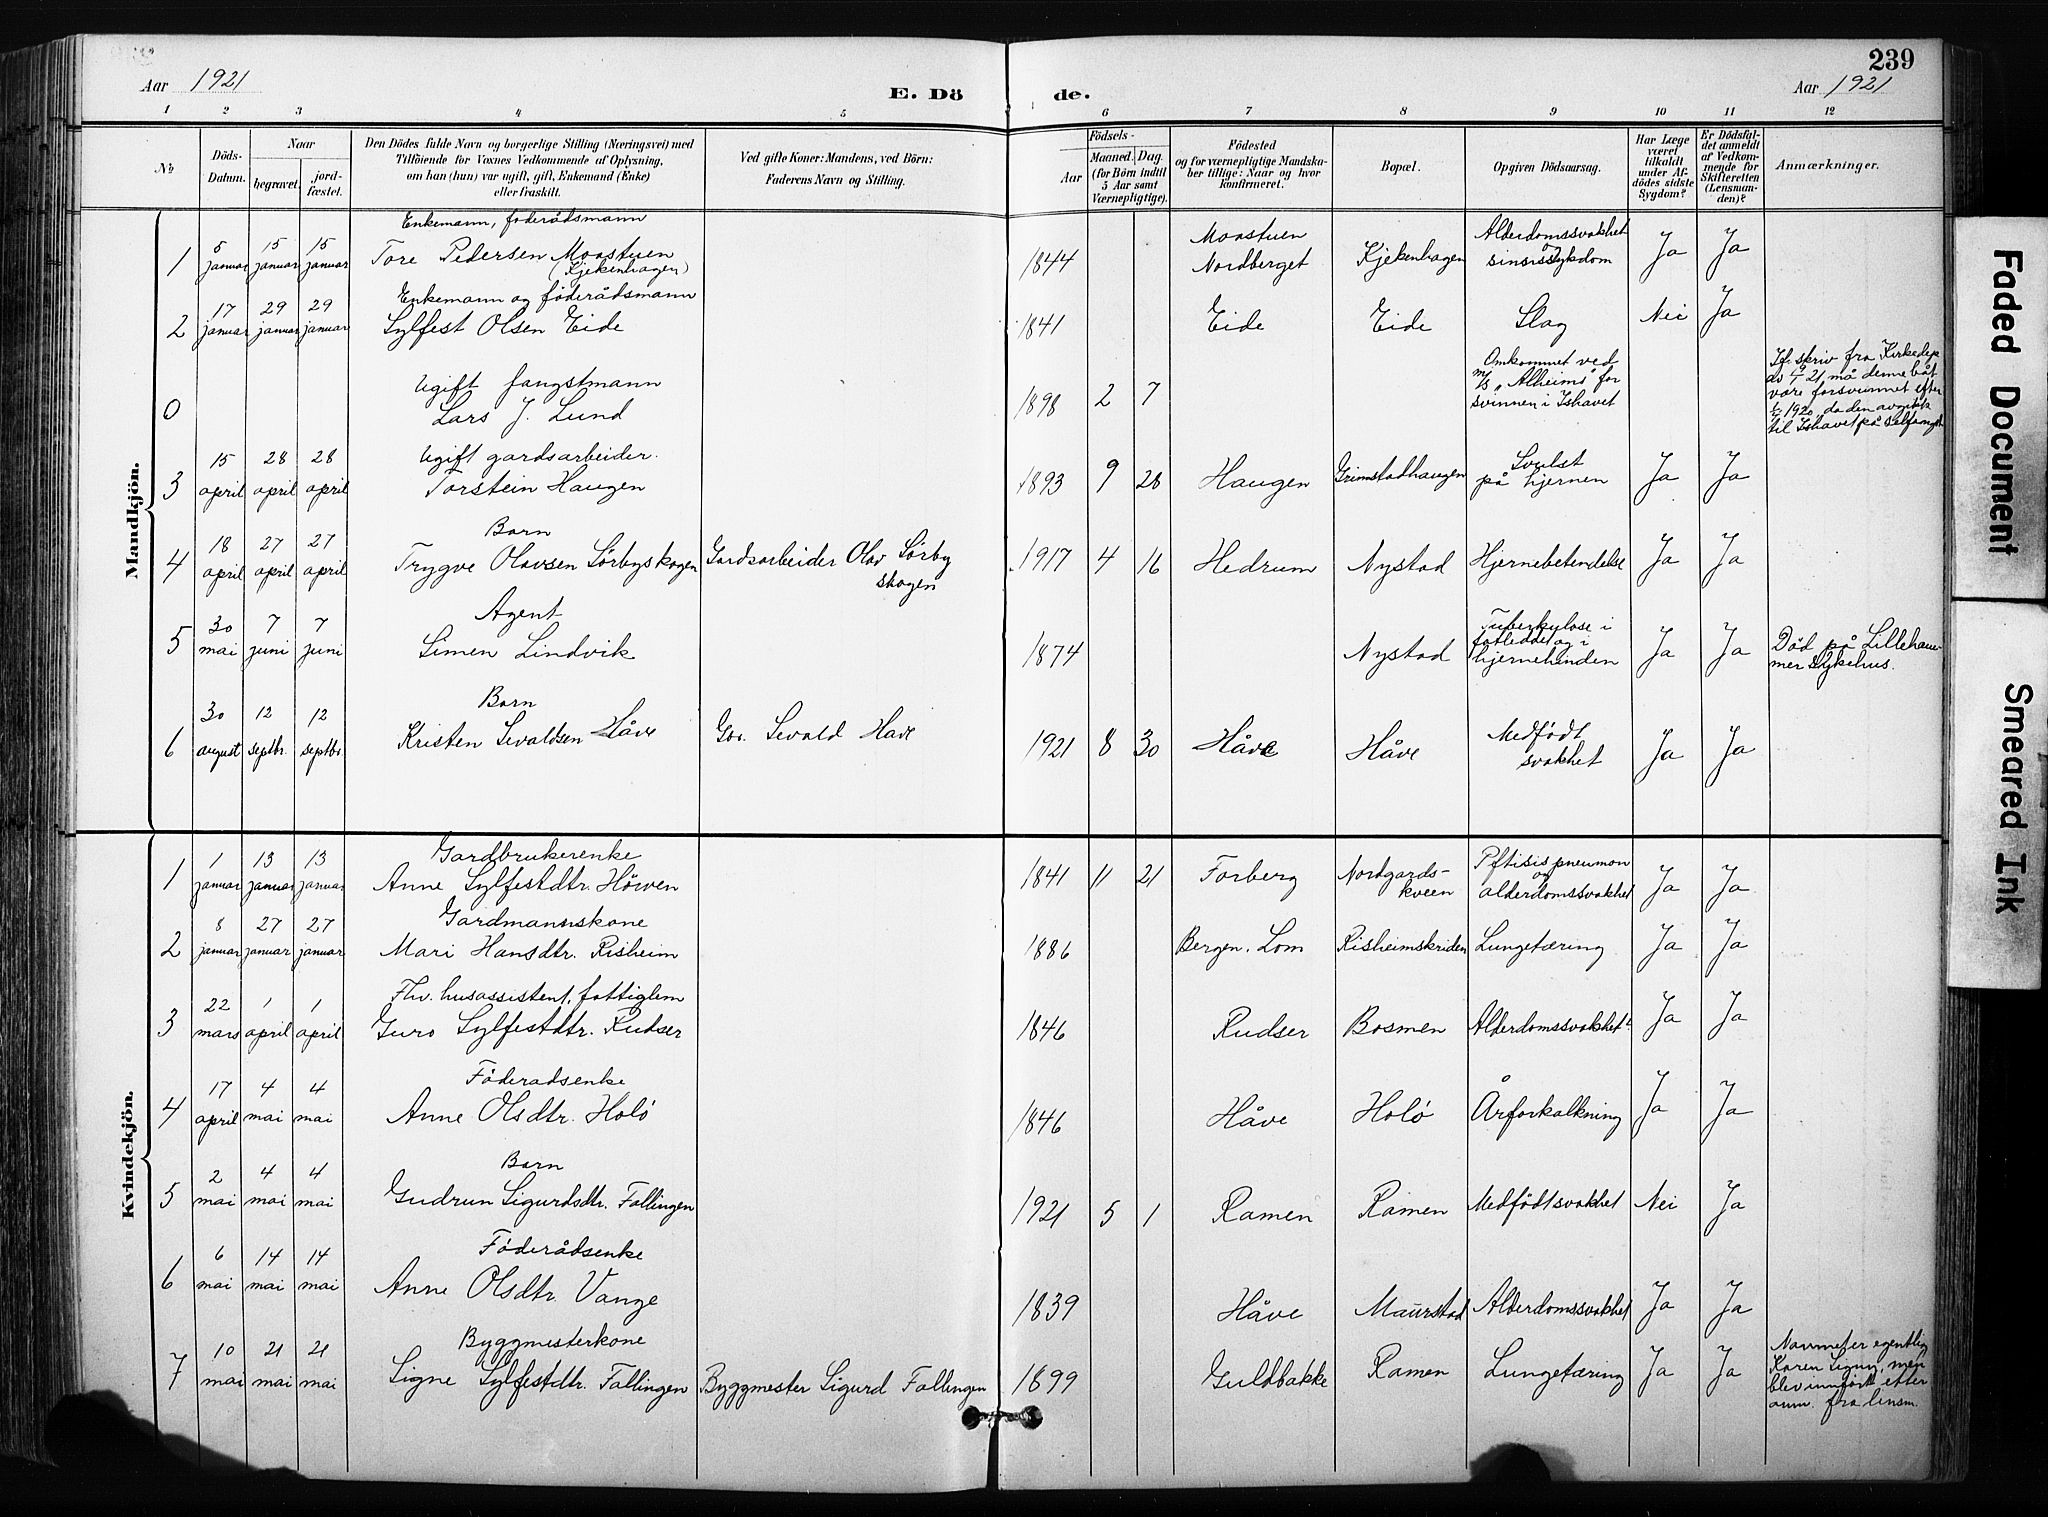 239
Aar 1921
E. Dö
de.
Aar 1921
1 2 3 4 5 6 7 8 9 10 11 12
No
Döds-
Datum.
Naar
begravet.
jord-
fæstet.
Den Dödes fulde Navn og borgerlige Stilling (Næringsvei) med
Tilföiende for Voxnes Vedkommende af Oplysning,
om han (hun) var ugift, gift, Enkemand (Enke)
eller fraskilt.
Ved gifte Koner: Mandens, ved Börn:
Faderens Navn og Stilling.
Födsels-
Aar
Maaned. Dag.
(for Börn indtil
5 Aar samt
Værnepligtige).
Födested
og for værnepligtige Mandska-
ber tillige: Naar og hvor
konfirmeret.
Bopæl.
Opgiven Dödsaarsag.
Har Læge
været
tilkaldt
under Af-
dödes sidste
Sygdom?
Er Dödsfal-
det anmeldt
af Vedkom-
mende for
Skifteretten
(Lensman-
den)?
Anmærkninger.
Mandkjön.
Enkemann, föderådsmann
1 5 januar 15 januar 15 januar Tore Pedersen Moastuen (Kjekenhagen) 1844 Moastuen Nordberget Kjekenhagen Alderdomssvakhet og sinsissykdom Ja Ja
Enkemann og föderådsmann
2 17 januar 29 januar 29 januar Sylfest Olsen Eide 1841 Eide Eide Slag Nei Ja
Ugift fangstmann
0 Lars J. Lund 1898 2 7 Omkommet ved m/s "Alheims" for svinnen i Ishavet
If. skriv fra Kirkedep
av 9/4 21 må denne båt
være forsvunnet efter
1920, da den avgikk
til Ishavet på selfangst
Ugift gardsarbeider.
3 15 april 28 april 28 april Torstein Haugen 1893 9 28 Haugen Grimstadhaugen Svulst på hjernen Ja Ja
Barn
4 18 april 27 april 27 april Trygve Olavsen Sörbyskogen Gardsarbeider Olav Sörby skogen 1917 4 16 Hedrum Nystad Hjernebetendelse Ja Ja
Agent
5 30 mai 7 juni 7 juni Simen Lindvik 1874 Nystad Tuberkulose i fotleddet og i hjernehinden Ja Ja Död på Lillehammer sykehus.
Barn
6 30 august 12 septbr. 12 septbr. Kristen Sevaldsen Håve Gbr. Sevald Have 1921 8 30 Håve Håve Medfödt svakhet Ja Ja
Kvindekjön.
Gardbrukerenke
1 1 januar 13 januar 13 januar Anne Sylfestdtr. Hörven 1841 11 21 Forberg Nordgards-kveen Pftisis pneumon og alderdomssvakhet Ja Ja
Gardmannskone
2 8 januar 27 januar 27 januar Mari Hansdtr. Risheim 1886 Bergen. Lom Risheimskriden Lungetæring Ja Ja
Fhv. husassistent, fattiglem
3 22 mars 1 april 1 april Guro Sylfestdtr. Rudser 1846 Rudser Bosmen Alderdomssvakhet Ja Ja
Föderadsenke
4 17 april 4 mai 4 mai Anne Olsdtr. Holö 1846 Håve Holö Årforkalkning Ja Ja
Barn
5 2 mai 4 mai 4 mai Gudrun Sigurdsdtr. Fallingen 1921 5 1 Ramen Ramen Medfödt svakhet Nei Ja
Föderådsenke
6 6 mai 14 mai 14 mai Anne Olsdtr. Vange 1839 Håve Maurstad Alderdomssvakhet Ja Ja
Byggmesterkone
7 10 mai 21 mai 21 mai Signe Sylfestdtr. Fallingen Byggmester Sigurd Fallingen 1899 Guldbakke Ramen Lungetæring Ja Ja
Navnet er egentlig
Karen Signy, men
blev innfört etter
anm. fra lensm.
Faded Document
Smeared Ink